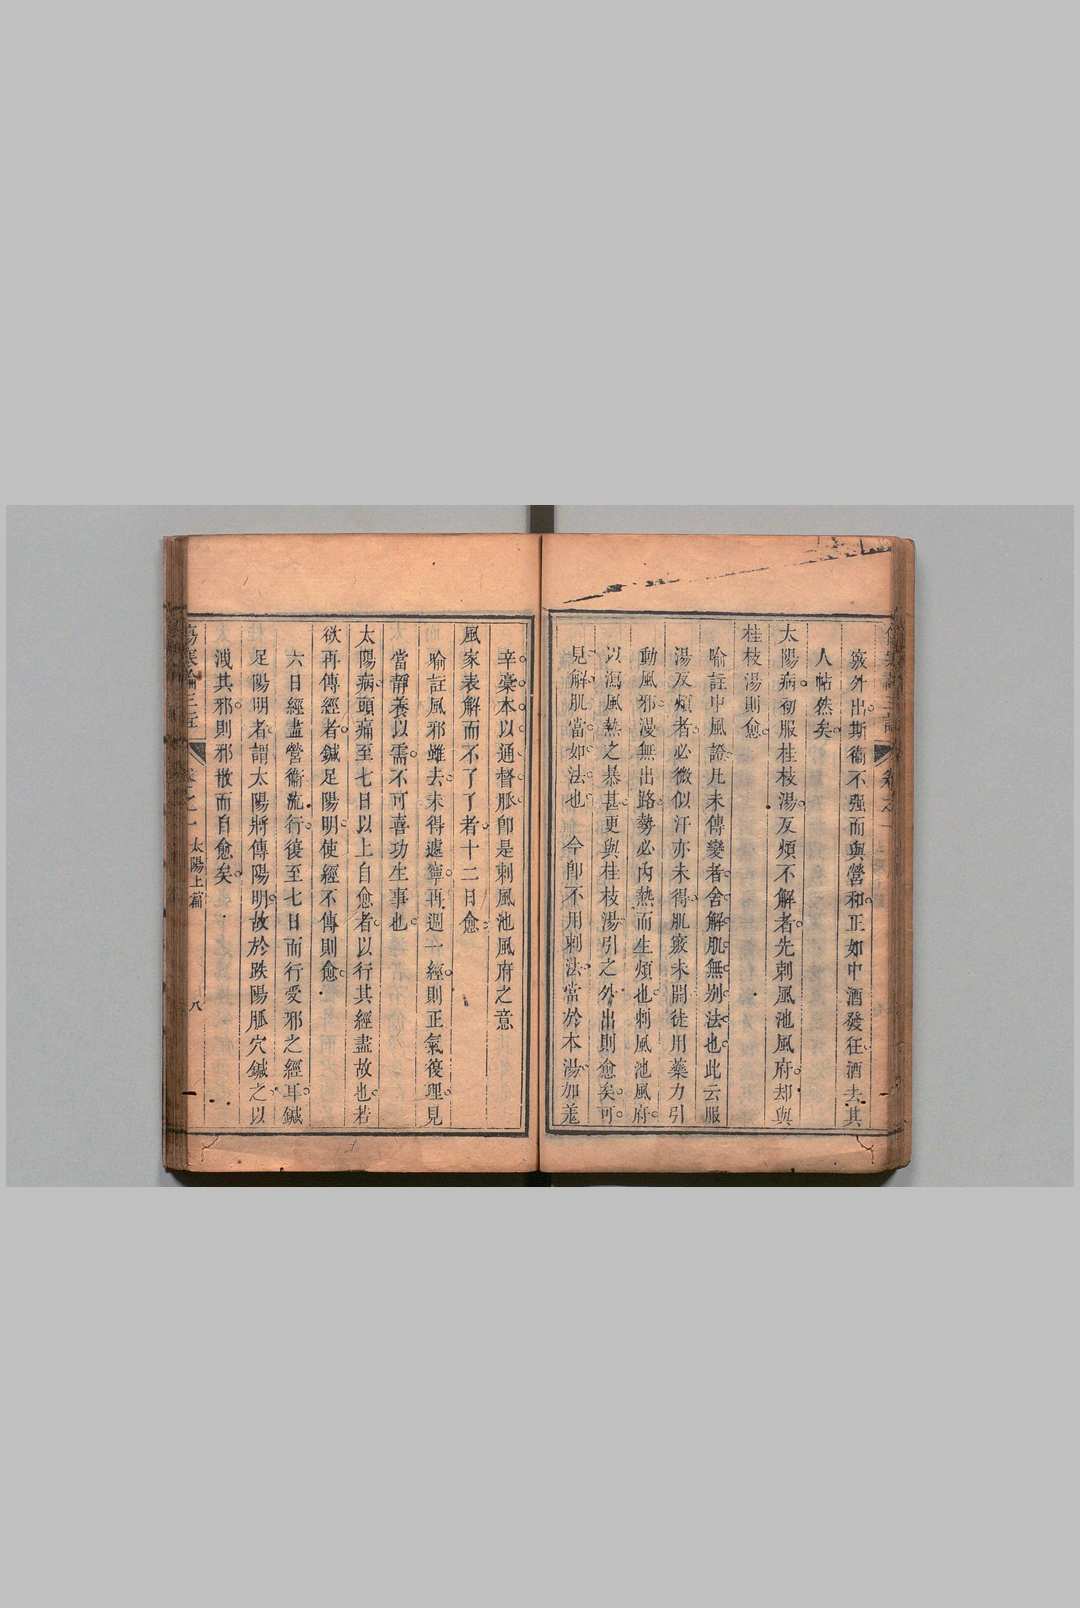 竅外出斯衞不强而與營和正如中酒發狂酒去其
人帖然矣
太陽病初服桂枝湯反煩不解者先刺風池風府却與
桂枝湯則愈
喻註中風證凡未傳變者舍解肌無别法也此云服
湯反煩者必微似汗亦未得肌竅未開徒用藥力引
動風邪漫無出路勢必内熱而生煩也刺風池風府
以瀉風熱之暴甚更與桂枝湯引之外出則愈矣可
見解肌當如法也 今卽不用刺法當於本湯加羗
辛藁本以通督脈卽是刺風池風府之意
風家表解而不了了者十二日愈
喻註風邪雖去未得遽寧再過一經則正氣復理見
當靜養以需不可喜功生事也
太陽病頭痛至七日以上自愈者以行其經盡故也若
欲再傳經者鍼足陽明使經不傳則愈
六日經盡營衞流行復至七日而行受邪之經耳鍼
足陽明者謂太陽將傳陽明故於趺陽脈穴鍼之以
洩其邪則邪散而自愈矣
傷寒論三注 卷之一 太陽上篇 八